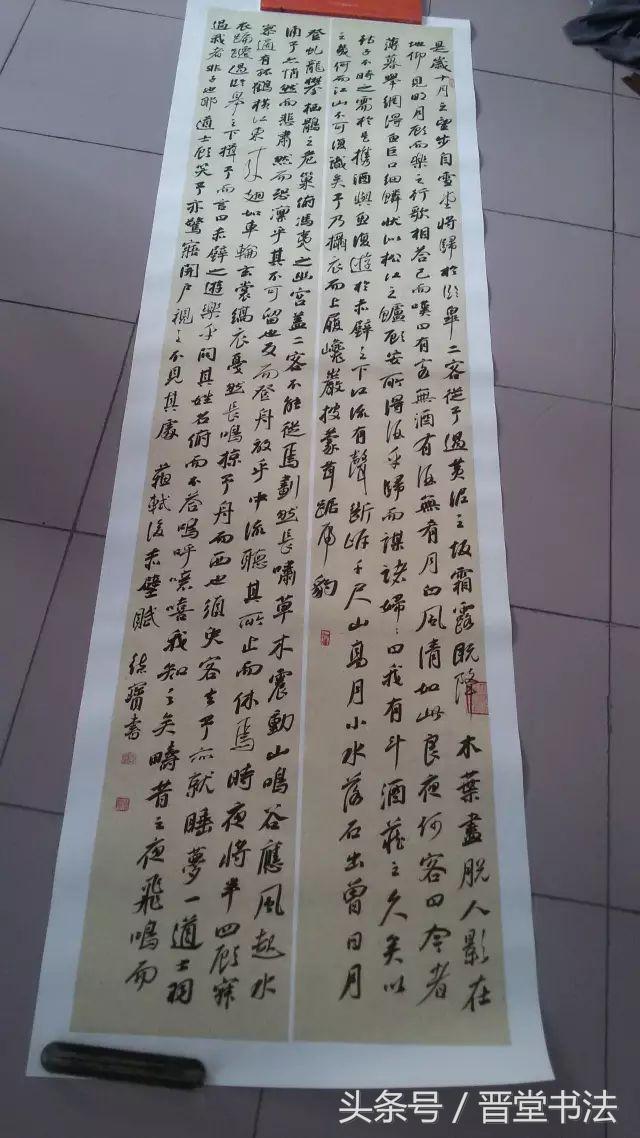 是歲十月之望步自雪堂將歸於臨皋二客從予過黃泥之坂霜露既降木葉盡脫人影在
地仰見明月顧而樂之行歌相答已而嘆曰有客無酒有酒無肴月白風清如此良夜何客曰今者
薄暮舉網得魚巨口細鱗狀似松江之鱸顧安所得酒乎歸而謀諸婦:曰我有斗酒藏之久矣以
待子不時之需於是攜酒與魚復遊於赤壁之下江流有聲斷岸千尺山高月小水落石出曾日月
之幾何而江山不可復識矣予乃攝衣而上履巉巖披蒙茸踞虎豹
登虬龍攀栖鶻之危巢俯馮夷之幽宮蓋二客不能從焉劃然長嘯草木震動山鳴谷應風起水
涌予亦悄然而悲肅然而恐凜乎其不可留也反而登舟放乎中流聽其所止而休焉時夜將半四顧寂
寥適有孤鶴橫江東來翅如車輪玄裳縞衣戛然長鳴掠予舟而西也須臾客去予亦就睡夢一道士羽
衣蹁躚過臨皋之下揖予而言曰赤壁之遊樂乎問其姓名俯而不答嗚呼噫嘻我知之矣疇昔之夜飛鳴而
過我者非子也耶道士顧笑予亦驚寤開戶視之不見其處 蘇軾後赤壁賦 寶書
头条号／晋堂书法